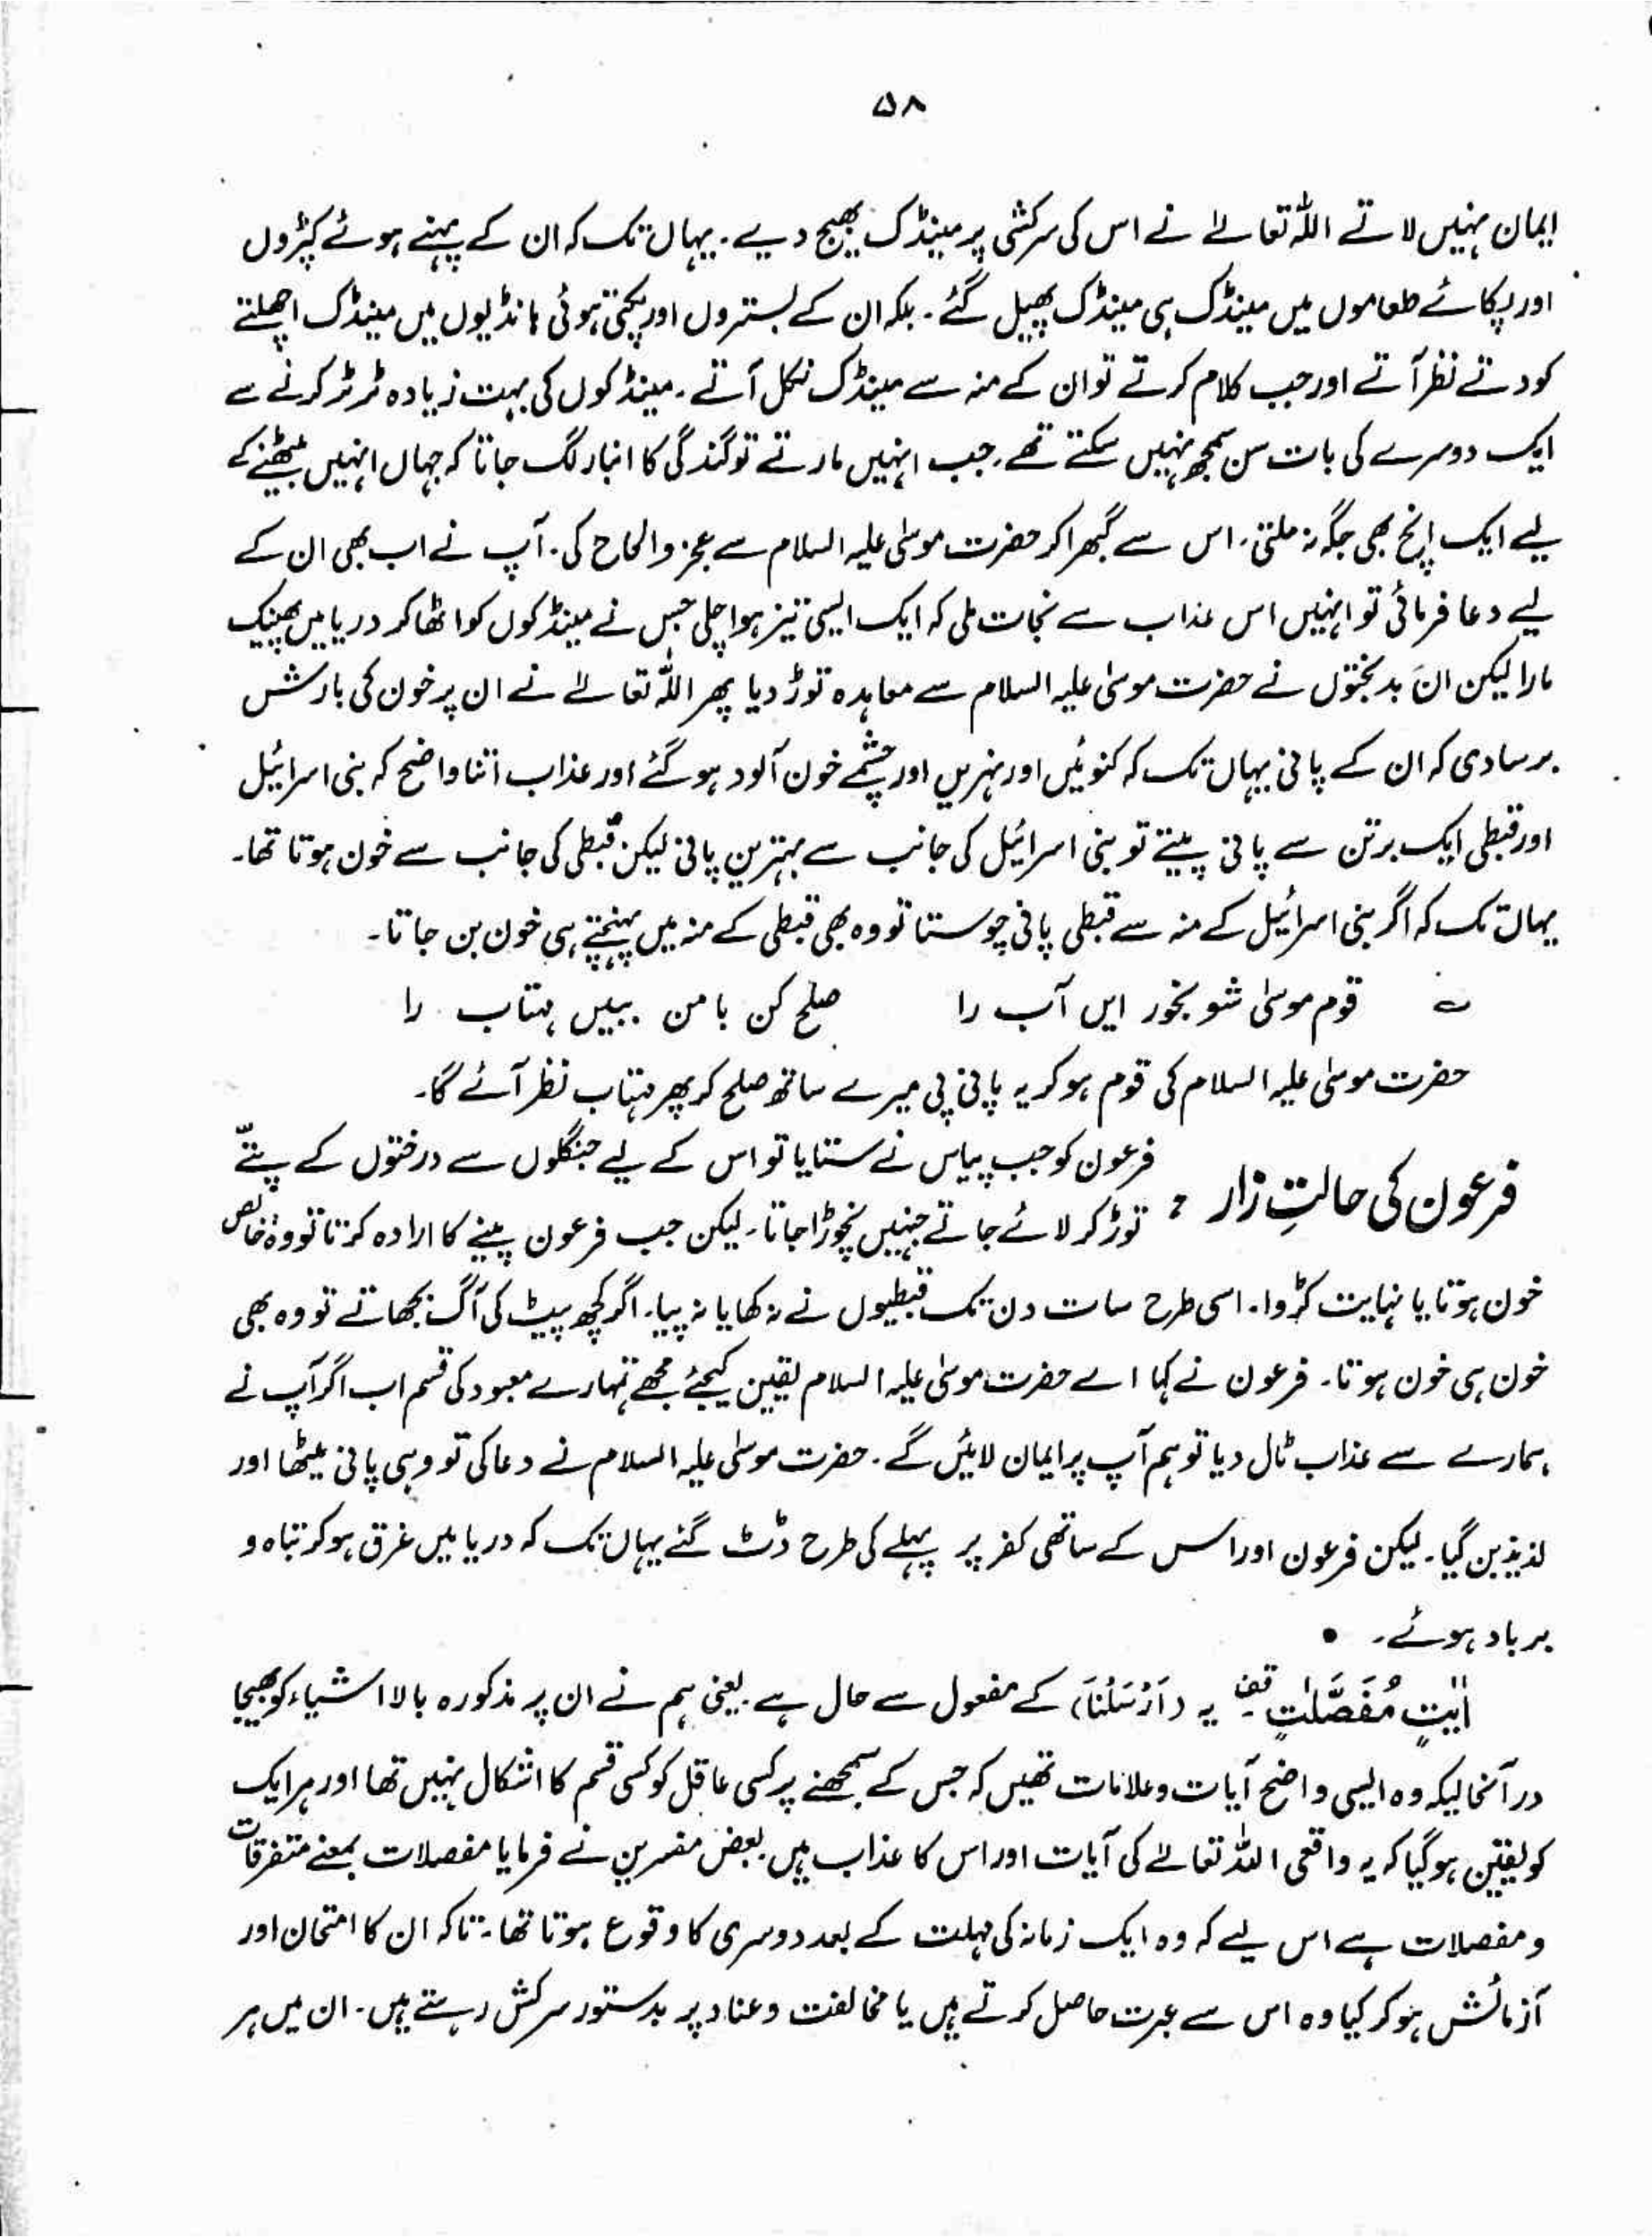 ۵۸
ایمان نہیں لاتے اللہ تعالےٰ نے اس کی سرکشی پر مینڈک بھیج دیے۔ یہاں تک کہ ان کے پہنے ہوئے کپڑوں
اور پکائے طعاموں میں مینڈک ہی مینڈک پھیل گئے۔ بلکہ ان کے بستروں اور پکتی ہوئی ہانڈیوں میں مینڈک اچھلتے
کودتے نظر آتے اور جب کلام کرتے تو ان کے منہ سے مینڈک نکل آتے۔ مینڈکوں کی بہت زیادہ ٹرٹر کرنے سے
ایک دوسرے کی بات سن سمجھ نہیں سکتے تھے۔ جب انہیں مارتے تو گندگی کا انبار لگ جاتا کہ جہاں انہیں بیٹھنے کے
لیے ایک انچ بھی جگہ نہ ملتی۔ اس سے گھبرا کر حضرت موسیٰ علیہ السلام سے عجز و الحاح کی۔ آپ نے اب بھی ان کے
لیے دعا فرمائی تو انہیں اس عذاب سے نجات ملی کہ ایک ایسی تیز ہوا چلی جس نے مینڈکوں کو اٹھا کر دریا میں پھینک
مارا لیکن ان بدبختوں نے حضرت موسیٰ علیہ السلام سے معاہدہ توڑ دیا پھر اللہ تعالےٰ نے ان پر خون کی بارش
برسا دی کہ ان کے پانی یہاں تک کہ کنوئیں اور نہریں اور چشمے خون آلود ہو گئے اور عذاب اتنا واضح کہ بنی اسرائیل
اور قبطی ایک برتن سے پانی پیتے تو بنی اسرائیل کی جانب سے بہترین پانی لیکن قبطی کی جانب سے خون ہوتا تھا۔
یہاں تک کہ اگر بنی اسرائیل کے منہ سے قبطی پانی چوستا تو وہ بھی قبطی کے منہ میں پہنچتے ہی خون بن جاتا۔
؎ قوم موسیٰ شو بخور ایں آب را صلح کن با من ببیں مہتاب را
حضرت موسیٰ علیہ السلام کی قوم ہو کر یہ پانی پی میرے ساتھ صلح کر پھر مہتاب نظر آئے گا۔
فرعون کی حالتِ زار : فرعون کو جب پیاس نے ستایا تو اس کے لیے جنگلوں سے درختوں کے پتّے
توڑ کر لائے جاتے جنہیں نچوڑا جاتا۔ لیکن جب فرعون پینے کا ارادہ کرتا تو وہ خالص
خون ہوتا یا نہایت کڑوا۔ اسی طرح سات دن تک قبطیوں نے نہ کھایا نہ پیا۔ اگر کچھ پیٹ کی آگ بجھاتے تو وہ بھی
خون ہی خون ہوتا۔ فرعون نے کہا اے حضرت موسیٰ علیہ السلام یقین کیجئے مجھے تمہارے معبود کی قسم اب اگر آپ نے
ہمارے سے عذاب ٹال دیا تو ہم آپ پر ایمان لائیں گے۔ حضرت موسیٰ علیہ السلام نے دعا کی تو وہی پانی میٹھا اور
لذیذ بن گیا۔ لیکن فرعون اور اس کے ساتھی کفر پر پہلے کی طرح ڈٹ گئے یہاں تک کہ دریا میں غرق ہو کر تباہ و
برباد ہوئے۔ •
اٰیٰتٍ مُّفَصَّلٰتٍ قف یہ (اَرْسَلْنَا) کے مفعول سے حال ہے۔ یعنی ہم نے ان پر مذکورہ بالا اشیاء کو بھیجا
در آنحالیکہ وہ ایسی واضح آیات و علامات تھیں کہ جس کے سمجھنے پر کسی عاقل کو کسی قسم کا اشکال نہیں تھا اور ہر ایک
کو یقین ہو گیا کہ یہ واقعی اللہ تعالےٰ کی آیات اور اس کا عذاب ہیں۔ بعض مفسرین نے فرمایا مفصلات بمعنے متفرقات
و مفصلات ہے اس لیے کہ وہ ایک زمانہ کی مہلت کے بعد دوسری کا وقوع ہوتا تھا۔ تاکہ ان کا امتحان اور
آزمائش ہو کر کیا وہ اس سے عبرت حاصل کرتے ہیں یا مخالفت و عناد پر بدستور سرکش رہتے ہیں۔ ان میں ہر